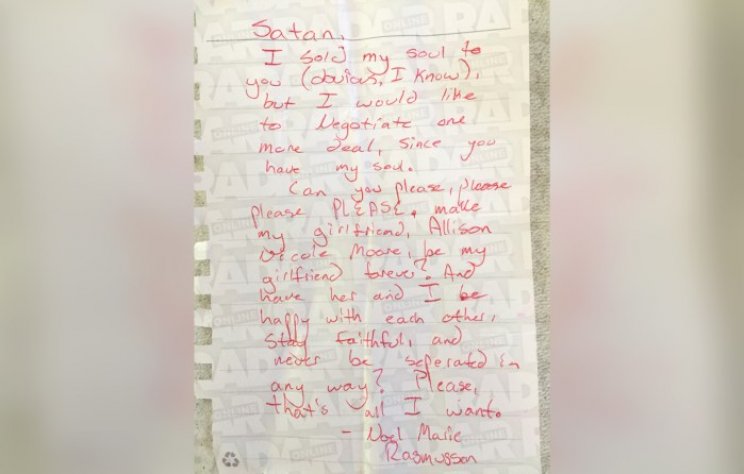 Satan,
I sold my soul to
you (obvious, I know),
but I would like
to Negotiate one
more deal, since you
have my soul.
Can you please, please
please PLEASE, make
my girlfriend, Allison
Moore, be my
girlfriend forever? And
have her and I be
happy with each other,
stay faithful, and
never be seperated in
any way? Please,
that's all I want.
- Noel Marie
Rasmussen
RADAR
ONLINE